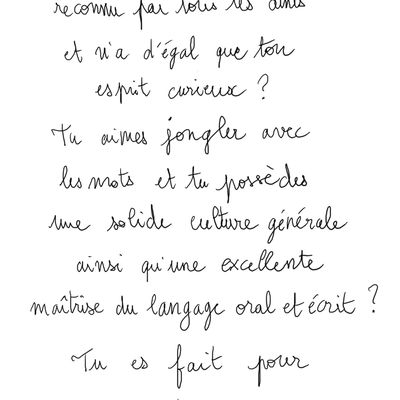 reconnu par tous tes amis
et n'a d'égal que ton
esprit curieux ?
Tu aimes jongler avec
les mots et tu possèdes
une solide culture générale
ainsi qu'une excellente
maîtrise du langage oral et écrit ?
Tu es fait pour